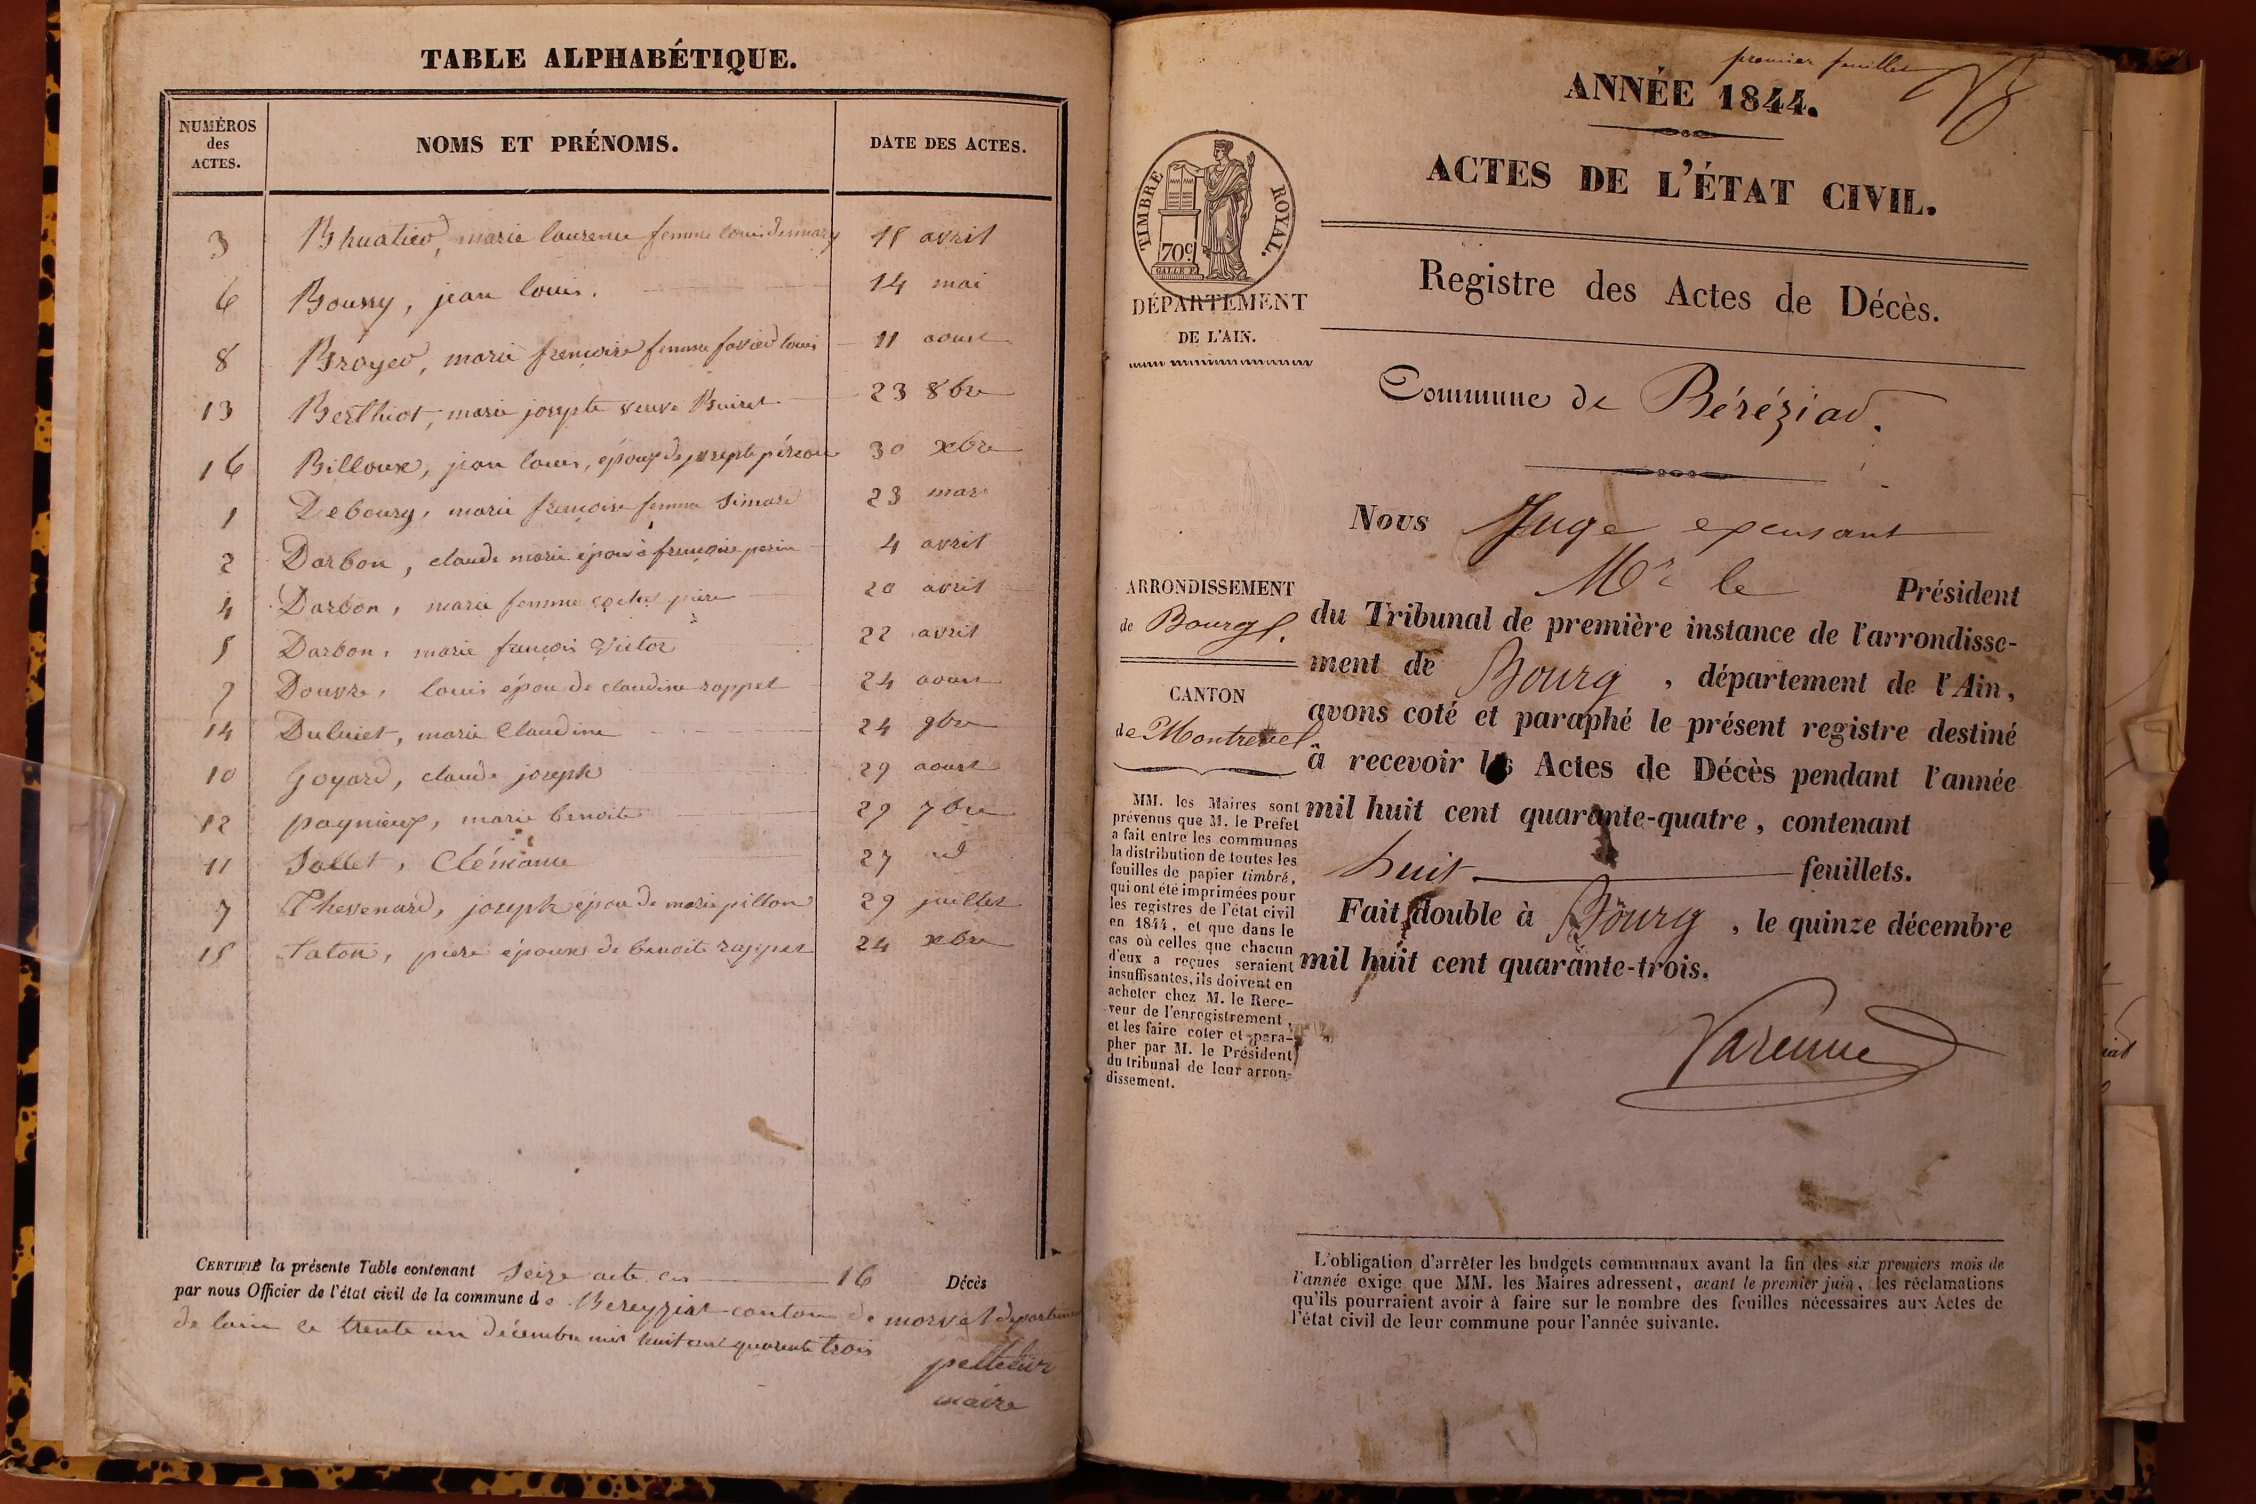 TABLE ALPHABÉTIQUE.
NUMÉROS
des
ACTES.
NOMS ET PRÉNOMS.
DATE DES ACTES.
3 marie laurence femme louis 15 avril
6 Boussy, jean louis. 14 mai
8 Broyer, marie françoise femme favier louis 11 aoust
13 Berthiot, marie josepte veuve Buiret 23 8bre
16 Billoux, jean louis, époux de josepte 30 xbre
1 Debourg, marie françoise femme Simard 23 mars
2 Darbon, claude marie époux à françoise perin 4 avril
4 Darbon, marie femme piere 20 avril
5 Darbon, marie françois Victor 22 avril
9 Douvre, louis épou de claudine rappet 24 aoust
14 marie Claudine 24 9bre
10 Goyard, claude joseph 29 aoust
12 pagnieux, marie benoite 29 7bre
11 Sallet, Clémence 27 id
7 Thevenard, joseph épou de marie pillon 29 juillet
15 Taton, piere épouxe de benoite rappet 24 xbre
CERTIFIÉ la présente Table contenant Seize acte 16 Décès
par nous Officier de l'état civil de la commune de Bereyziat canton de departement
de lain ce trente un décembre mil huit cent quarente trois
pelletier
maire
premier feuillet
ANNÉE 1844.
ACTES DE L'ÉTAT CIVIL.
TIMBRE ROYAL.
70c
DÉPARTEMENT
DE L'AIN.
Registre des Actes de Décès.
Commune de Béréziad.
Nous Juge excusant
Mr le Président
du Tribunal de première instance de l'arrondisse-
ment de Bourg, département de l'Ain,
avons coté et paraphé le présent registre destiné
à recevoir les Actes de Décès pendant l'année
mil huit cent quarante-quatre, contenant
huit feuillets.
Fait double à Bourg, le quinze décembre
mil huit cent quarante-trois.
Varenne
ARRONDISSEMENT
de Bourg.
CANTON
de Montrevel
MM. les Maires sont
prévenus que M. le Préfet
a fait entre les communes
la distribution de toutes les
feuilles de papier timbré,
qui ont été imprimées pour
les registres de l'état civil
en 1844, et que dans le
cas où celles que chacun
d'eux a reçues seraient
insuffisantes, ils doivent en
acheter chez M. le Rece-
veur de l'enregistrement,
et les faire coter et para-
pher par M. le Président
du tribunal de leur arron-
dissement.
L'obligation d'arrêter les budgets communaux avant la fin des six premiers mois de
l'année exige que MM. les Maires adressent, avant le premier juin, les réclamations
qu'ils pourraient avoir à faire sur le nombre des feuilles nécessaires aux Actes de
l'état civil de leur commune pour l'année suivante.